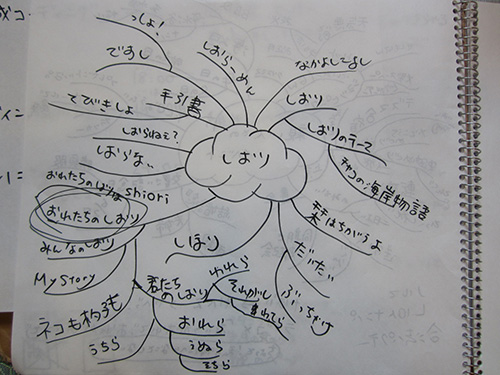 っしょ!
ですし
しおらーめん
なかよしこよし
しおり
手引書
てびきしょ
しおりのテーマ
しおらねぇ?
しおらな、、
しおり
海岸物語
shiori
おれたちのしおり
みんなのしおり
しほり
栞はちがうよ
だいたい
ぶっちゃけ
My Story
君たちのしおり
われら
それがし
ネコも杓子
おれら
うぬら
うちら
そちら